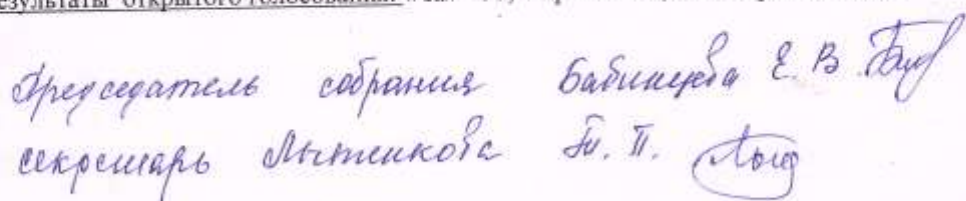 результаты открытого голосования
Председатель собрания Бабинцева Е. В.
секретарь Лыткикова Т. П.